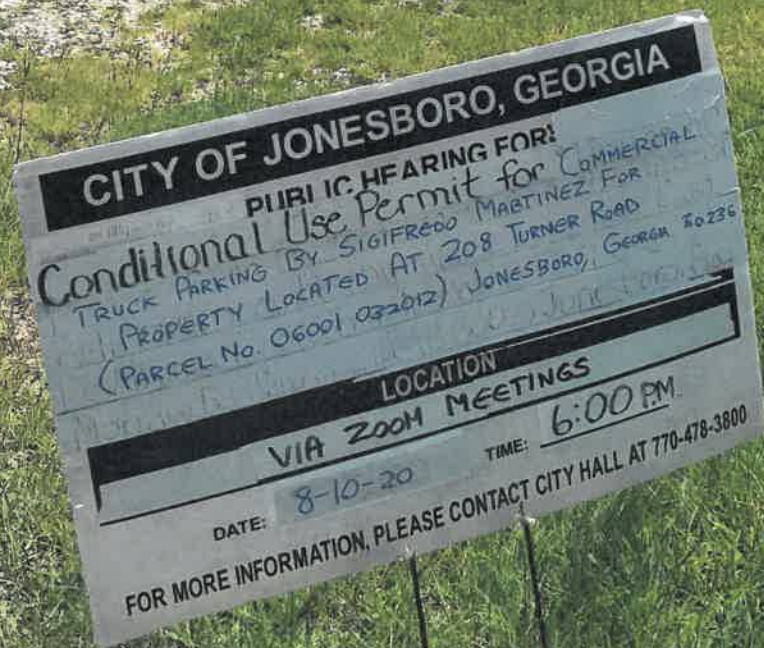 CITY OF JONESBORO, GEORGIA
PUBLIC HEARING FOR:
Conditional Use Permit for COMMERCIAL
TRUCK PARKING BY SIGIFREDO MARTINEZ FOR
PROPERTY LOCATED AT 208 TURNER ROAD
(PARCEL No. 06001 032012) JONESBORO, GEORGIA 30236
LOCATION
VIA ZOOM MEETINGS
DATE: 8-10-20 TIME: 6:00 PM
FOR MORE INFORMATION, PLEASE CONTACT CITY HALL AT 770-478-3800